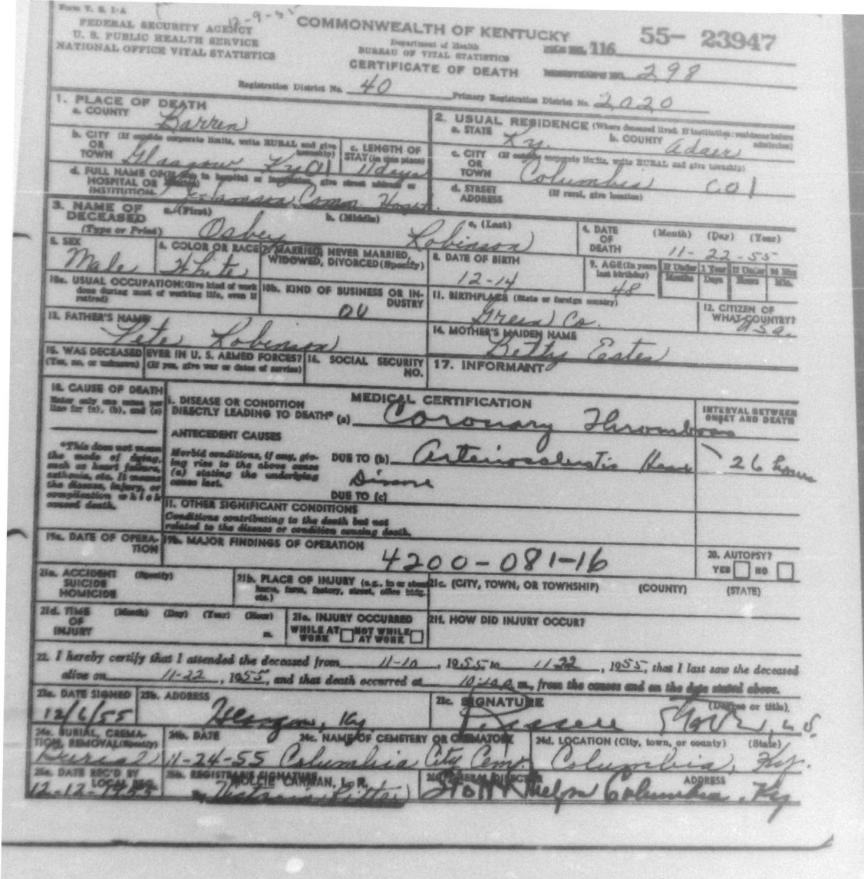 Form V. S. 1-A
FEDERAL SECURITY AGENCY
U. S. PUBLIC HEALTH SERVICE
NATIONAL OFFICE VITAL STATISTICS
COMMONWEALTH OF KENTUCKY
Department of Health
BUREAU OF VITAL STATISTICS
CERTIFICATE OF DEATH
55- 23947
116
298
Registration District No. 40
Primary Registration District No. 2020
1. PLACE OF DEATH
a. COUNTY Barren
b. CITY (If outside corporate limits, write RURAL and give township)
OR
TOWN Glasgow Ky
c. LENGTH OF STAY (in this place)
11 days
d. FULL NAME OF
HOSPITAL OR
INSTITUTION
2. USUAL RESIDENCE (Where deceased lived. If institution: residence before admission)
a. STATE Ky.
b. COUNTY Adair
c. CITY (If outside corporate limits, write RURAL and give township)
OR
TOWN Columbia 001
d. STREET ADDRESS (If rural, give location)
3. NAME OF DECEASED (Type or Print)
a. (First) Osbey
b. (Middle)
c. (Last) Robinson
4. DATE OF DEATH (Month) (Day) (Year)
11-22-55
5. SEX
Male
6. COLOR OR RACE
White
7. MARRIED, NEVER MARRIED, WIDOWED, DIVORCED (Specify)
8. DATE OF BIRTH
12-14
9. AGE (In years last birthday)
48
If Under 1 Year
Months Days
If Under 24 Hrs
Hours Min.
10a. USUAL OCCUPATION (Give kind of work done during most of working life, even if retired)
10b. KIND OF BUSINESS OR INDUSTRY
11. BIRTHPLACE (State or foreign country)
Green Co.
12. CITIZEN OF WHAT COUNTRY?
USA
13. FATHER'S NAME
Pete Robinson
14. MOTHER'S MAIDEN NAME
Betty Estes
15. WAS DECEASED EVER IN U. S. ARMED FORCES?
(Yes, no, or unknown) (If yes, give war or dates of service)
16. SOCIAL SECURITY NO.
17. INFORMANT
18. CAUSE OF DEATH
Enter only one cause per line for (a), (b), and (c)
*This does not mean the mode of dying, such as heart failure, asthenia, etc. It means the disease, injury, or complication which caused death.
MEDICAL CERTIFICATION
I. DISEASE OR CONDITION
DIRECTLY LEADING TO DEATH* (a) Coronary Thrombosis
ANTECEDENT CAUSES
Morbid conditions, if any, giving rise to the above cause (a) stating the underlying cause last.
DUE TO (b) Arteriosclerotic Heart
Disease
DUE TO (c)
INTERVAL BETWEEN ONSET AND DEATH
26 hours
II. OTHER SIGNIFICANT CONDITIONS
Conditions contributing to the death but not related to the disease or condition causing death.
19a. DATE OF OPERATION
19b. MAJOR FINDINGS OF OPERATION
4200-081-16
20. AUTOPSY?
YES NO
21a. ACCIDENT (Specify)
SUICIDE
HOMICIDE
21b. PLACE OF INJURY (e.g., in or about home, farm, factory, street, office bldg. etc.)
21c. (CITY, TOWN, OR TOWNSHIP) (COUNTY) (STATE)
21d. TIME OF INJURY (Month) (Day) (Year) (Hour)
m.
21e. INJURY OCCURRED
WHILE AT WORK NOT WHILE AT WORK
21f. HOW DID INJURY OCCUR?
22. I hereby certify that I attended the deceased from 11-10, 1955 to 11-22, 1955, that I last saw the deceased
alive on 11-22, 1955, and that death occurred at m., from the causes and on the date stated above.
23a. DATE SIGNED
12/6/55
23b. ADDRESS
Glasgow, Ky
23c. SIGNATURE (Degree or title)
24a. BURIAL, CREMATION, REMOVAL (Specify)
Burial
24b. DATE
11-24-55
24c. NAME OF CEMETERY OR CREMATORY
Columbia City Cem.
24d. LOCATION (City, town, or county) (State)
Columbia, Ky.
25a. DATE REC'D BY LOCAL REG.
12-12-1955
25b. REGISTRAR'S SIGNATURE
26. FUNERAL DIRECTOR ADDRESS
Columbia, Ky